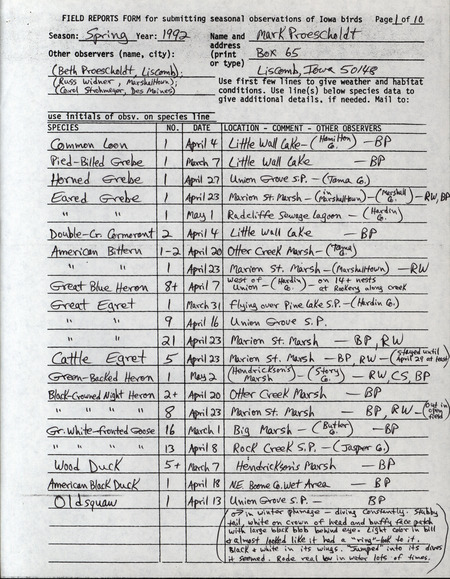 FIELD REPORTS FORM for submitting seasonal observations of Iowa birds Page 1 of 10
Season: Spring Year: 1992 Name and address (print or type) Mark Proescholdt
Other observers (name, city): Box 65
(Beth Proescholdt, Liscomb); Liscomb, Iowa 50148
(Russ Widner, Marshalltown);
(Carol Strohmeyer, Des Moines)
Use first few lines to give weather and habitat
conditions. Use line(s) below species data to
give additional details, if needed. Mail to:
use initials of obsv. on species line
SPECIES NO. DATE LOCATION - COMMENT - OTHER OBSERVERS
Common Loon 1 April 4 Little Wall Lake - (Hamilton Co.) - BP
Pied-Billed Grebe 1 March 7 Little Wall Lake - BP
Horned Grebe 1 April 27 Union Grove S.P. - (Tama Co.)
Eared Grebe 1 April 23 Marion St. Marsh - (in Marshalltown) - (Marshall Co.) - RW, BP
" " 1 May 1 Radcliffe Sewage Lagoon - (Hardin Co.)
Double-Cr. Cormorant 2 April 4 Little Wall Lake - BP
American Bittern 1-2 April 20 Otter Creek Marsh - (Tama Co.)
" " 1 April 23 Marion St. Marsh - (Marshalltown) - RW
Great Blue Heron 8+ April 7 West of Union - (Hardin Co.) - on 14+ nests at Rookery along creek
Great Egret 1 March 31 flying over Pine Lake S.P. - (Hardin Co.)
" " 9 April 16 Union Grove S.P.
" " 21 April 23 Marion St. Marsh - BP, RW
Cattle Egret 5 April 23 Marion St. Marsh - BP, RW - (stayed until April 29 at least)
Green-Backed Heron 1 May 2 (Hendrickson's Marsh) - (Story Co.) - RW, CS, BP
Black-Crowned Night Heron 2+ April 20 Otter Creek Marsh - BP
" " " 8 April 23 Marion St. Marsh - BP, RW - (out in open field)
Gr. White-fronted Goose 16 March 1 Big Marsh - (Butler Co.) - BP
" " " " 13 April 8 Rock Creek S.P. - (Jasper Co.)
Wood Duck 5+ March 7 Hendrickson's Marsh - BP
American Black Duck 1 April 18 N.E. Boone Co. Wet Area - BP
Oldsquaw 1 April 13 Union Grove S.P. - BP
(♂ in winter plumage - diving constantly. Stubby
tail, white on crown of head and buffy face patch
with large black blob behind eye. Light color in bill
& almost looked like it had a "ring"-look to it.
Black & white in its wings. "Jumped" into its dives
it seemed. Rode real low in water lots of times.)